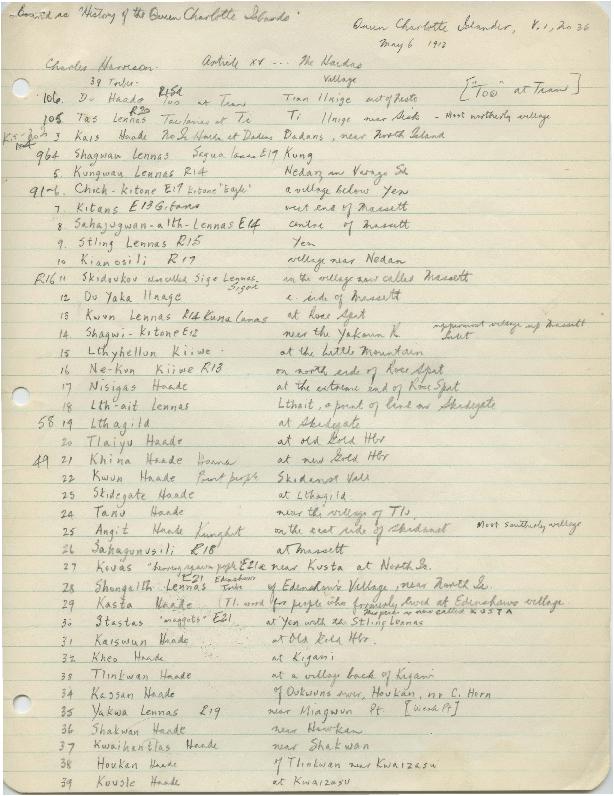 Bound as "History of the Queen Charlotte Islands"
Queen Charlotte Islander, V.1, no 36
May 6 1912
Charles Harrison. Article XV ... The Haidas
39 Tribes. Village
["Too" at Tian]
106. Du Haade Too at Tian Tian Ilnige
105 Tas Lennas Taslanas at Te Ti Ilnige near Sisk - Most northerly village
3 Kais Haade at Dadens Dadans, near North Island
964 Shagwan Lennas E19 Kung
5. Kungwan Lennas R14 Nedan in Virago Sd
91-6. Chich-Kitone E17 Kitone "Eagle" a village below Yen
7. Kitans E13 Gitans west end of Massett
8. Sahajugwan-alth-Lennas E14 centre of Massett
9. Stling Lennas R15 Yen
10 Kianosili R17 village near Nedan
R16 11 Skidoukou also called Sigo Lennas in the village now called Massett
12 Du Yaka Ilnage e. side of Massett
13 Kwun Lennas R14 Kuna lanas at Rose Spit
14 Shagwi-Kitone E12 near the Yakoun R. uppermost village up Massett Inlet
15 Lthyhellun Kiiwe at the Little Mountain
16 Ne-Kun Kiiwe R13 on north side of Rose Spit
17 Nisigas Haade at the extreme end of Rose Spit
18 Lth-ait Lennas Lthait, a point of land nr Skidegate
58 19 Lthagild at Skidegate
20 Tlaiyu Haade at old Gold Hbr
49 21 Khina Haade Hanna at new Gold Hbr
22 Kwun Haade Point people Skidanst Vall
23 Skidegate Haade at Lthagild
24 Tanu Haade near the village of Tlu
25 Angit Haade Kunghit on the east side of Skidanst Most southerly village
26 Sahagunusili R18 at Massett
27 Kouas "herring spawn people" E21a near Kusta at North Is.
28 Shongalth Lennas E21 Edenshaw's Tribe of Edenshaw's Village, near North Is.
29 Kasta Haade (Tl. word for people who formerly lived at Edenshaws village
now called KUSTA
30 Stastas "maggots" E21 at Yen with the Stling Lennas
31 Kaiswun Haade at Old Gold Hbr.
32 Kheo Haade at Kigani
33 Tlinkwan Haade at a village back of Kigani
34 Kassan Haade of Oukwuns river, Houkan, nr C. Horn
35 Yakwa Lennas R19 near Miagwun Pt. [Weak Pt]
36 Shakwan Haade near Howkan
37 Kwaihantlas Haade near Shakwan
38 Houkan Haade of Tlinkwan near Kwaizasu
39 Kousle Haade at Kwaizasu